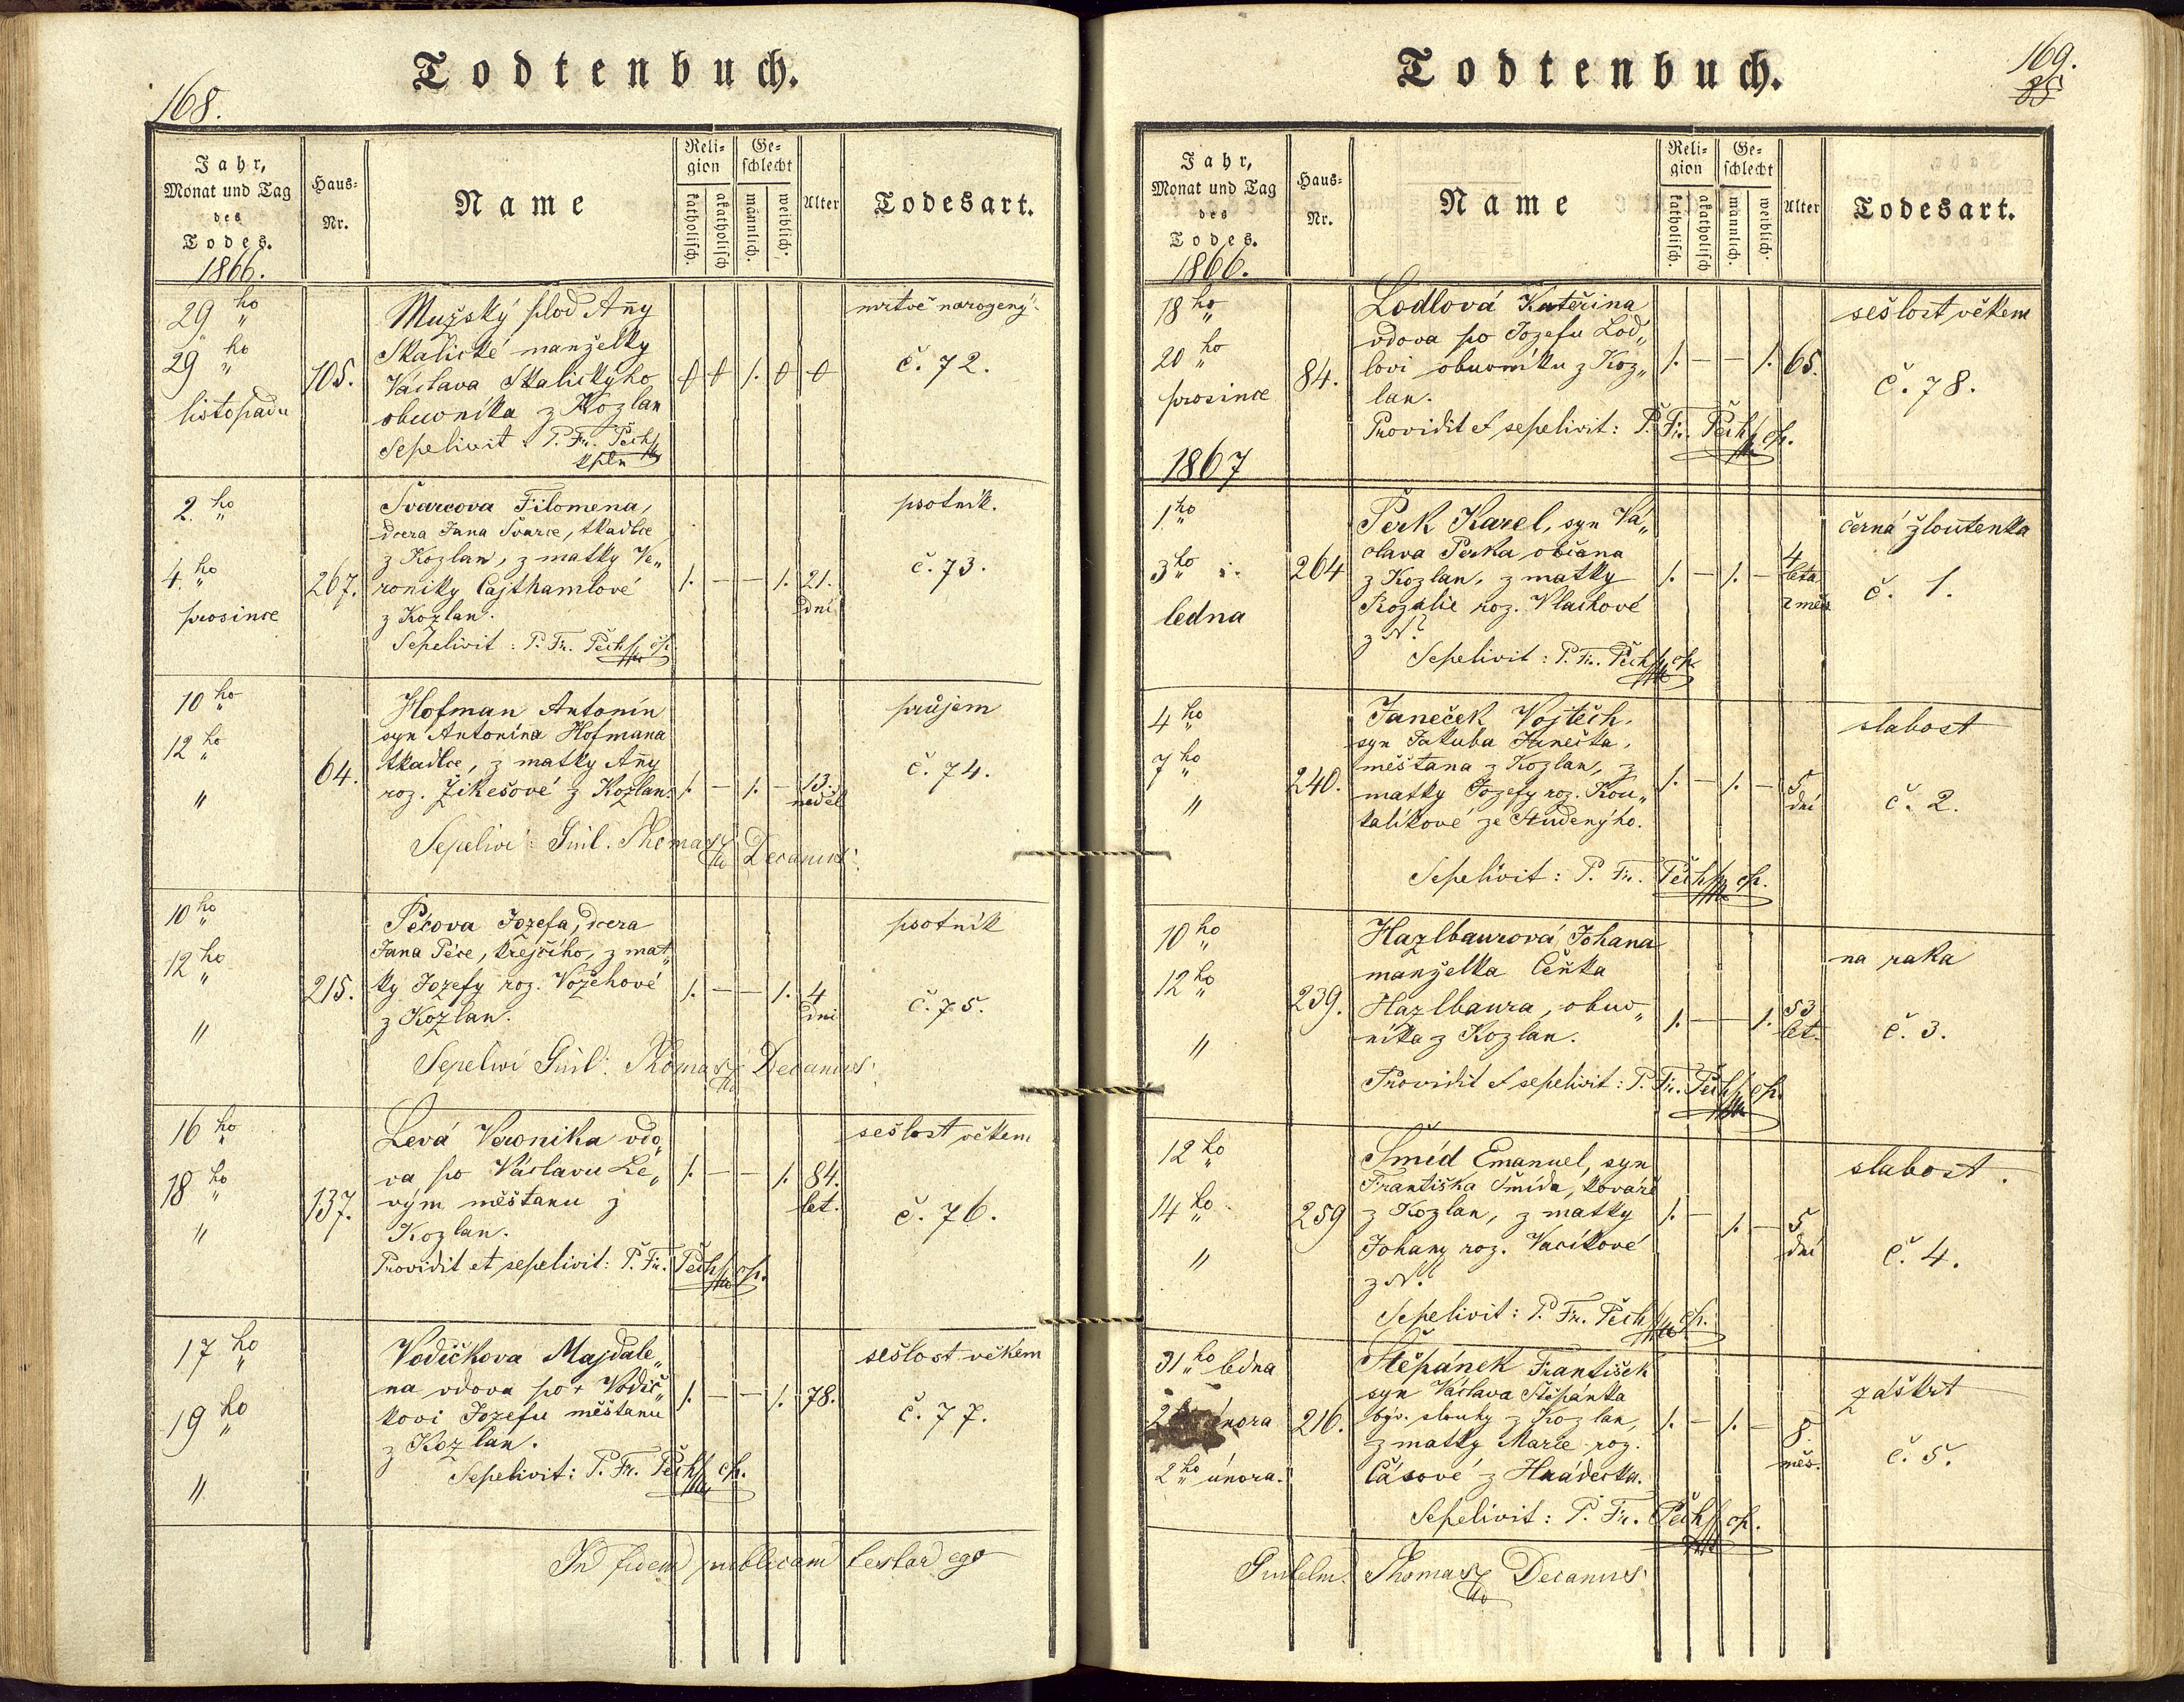 168.
Todtenbuch.
Jahr,
Monat und Tag
des
Todes.
1866.
Haus-
Nr.
Name
Reli-
gion
katholisch.
akatholisch
Ge-
schlecht
männlich.
weiblich.
Alter
Todesart.
29 ho
29 ho
listopadu
105.
Mužský plod Anny
Skalické manželky
Václava Skalickýho
obuvníka z Kozlan
Sepelivit: P. Fr. Pech
kpln
0 0 1. 0 0
mrtvě narozený.
č. 72.
2. ho
4. ho
prosince
267.
Švarcova Filomena,
dcera Jana Švarce, tkadlce
z Kozlan, z matky Ve„
roniky Cajthamlové
z Kozlan.
Sepelivit: P. Fr. Pech cp.
1. — — 1. 21.
dní
psotník.
č. 73.
10 ho
12 ho
"
64.
Hofman Antonín
syn Antonína Hofmana
tkadlce, z matky Anny
roz. Žikešové z Kozlan.
Sepelivi: Guil. Thomasz Decanus.
1. — 1. — 13.
neděl
průjem
č. 74.
10 ho
12 ho
"
215.
Pécova Jozefa, dcera
Jana Péce, krejčího, z mat„
ky Jozefy roz. Vožehové
z Kozlan.
Sepelivi Guil: Thomasz Decanus.
1. — — 1. 4
dni
psotník
č. 75.
16 ho
18 ho
"
137.
Levá Veronika vdo„
va po Václavu Le„
vým měštanu z
Kozlan.
Providit et sepelivit: P. Fr. Pech cp.
1. — — 1. 84.
let.
sešlost věkem
č. 76.
17 ho
19 ho
"
Vodičkova Majdale„
na vdova po + Vodič„
kovi Jozefu měštanu
z Kozlan.
Sepelivit: P. Fr. Pech cp.
1. — — 1. 78.
sešlost věkém
č. 77.
In fidem publicam testor ego
169.
85
Todtenbuch.
Jahr,
Monat und Tag
des
Todes.
1866.
Haus-
Nr.
Name
Reli-
gion
katholisch.
akatholisch
Ge-
schlecht
männlich.
weiblich.
Alter
Todesart.
18 ho
20 ho
prosince
84.
Lodlová Kateřina
vdova po Jozefu Lod„
lovi obuvníku z Koz„
lan.
Providit et sepelivit: P. Fr. Pech cp.
1. — — 1. 65.
sešlost věkem
č. 78.
1867
1. ho
3 ho
ledna
264
Perk Karel, syn Vá„
clava Perka občana
z Kozlan, z matky
Rozalie roz. Vlachové
z N.
Sepelivit: P. Fr. Pech cp.
1. — 1. — 4
léta
2 měs.
černá žloutenka
č. 1.
4 ho
7 ho
"
240.
Janeček Vojtěch.
syn Jakuba Janečka,
měštana z Kozlan, z
matky Jozefy roz. Kou„
talíkové ze Studenýho.
Sepelivit: P. Fr. Pech cp.
1. — 1. — 5
dní
slabost
č. 2.
10 ho
12 ho
"
239.
Hazlbaurová Johana
manželka Čeňka
Hazlbaura, obuv„
níka z Kozlan.
Providit et sepelivit: P. Fr. Pech cp.
1. — — 1. 53
let.
na raka
č. 3.
12 ho
14 ho
"
259
Šmíd Emanuel, syn
Františka Šmída, kováře
z Kozlan, z matky
Johany roz. Vacíkové
z N.
Sepelivit: P. Fr. Pech cp.
1. — 1. — 5
dní
slabost.
č. 4.
31 ho ledna
února
2 ho února.
216.
Štěpánek František
syn Václava Štěpánka
býv. slouhy z Kozlan,
z matky Marie roz.
Čásové z Hrádecka.
Sepelivit: P. Fr. Pech cp.
1. — 1. — 8.
měs.
záškrt
č. 5.
Guilelm. Thomasz Decanus